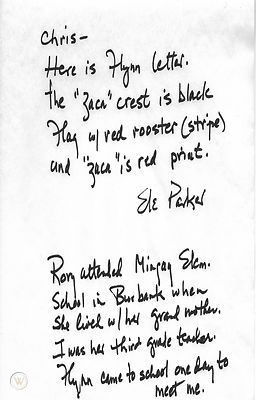 Chris—
Here is Flynn letter.
The "Zaca" crest is black
Flag w/ red rooster (stripe)
and "Zaca" is red print.
Ele Parker
Rory attended Mingay Elem.
School in Burbank when
she lived w/ her grand mother.
I was her third grade teacher.
Flynn came to school one day to
meet me.